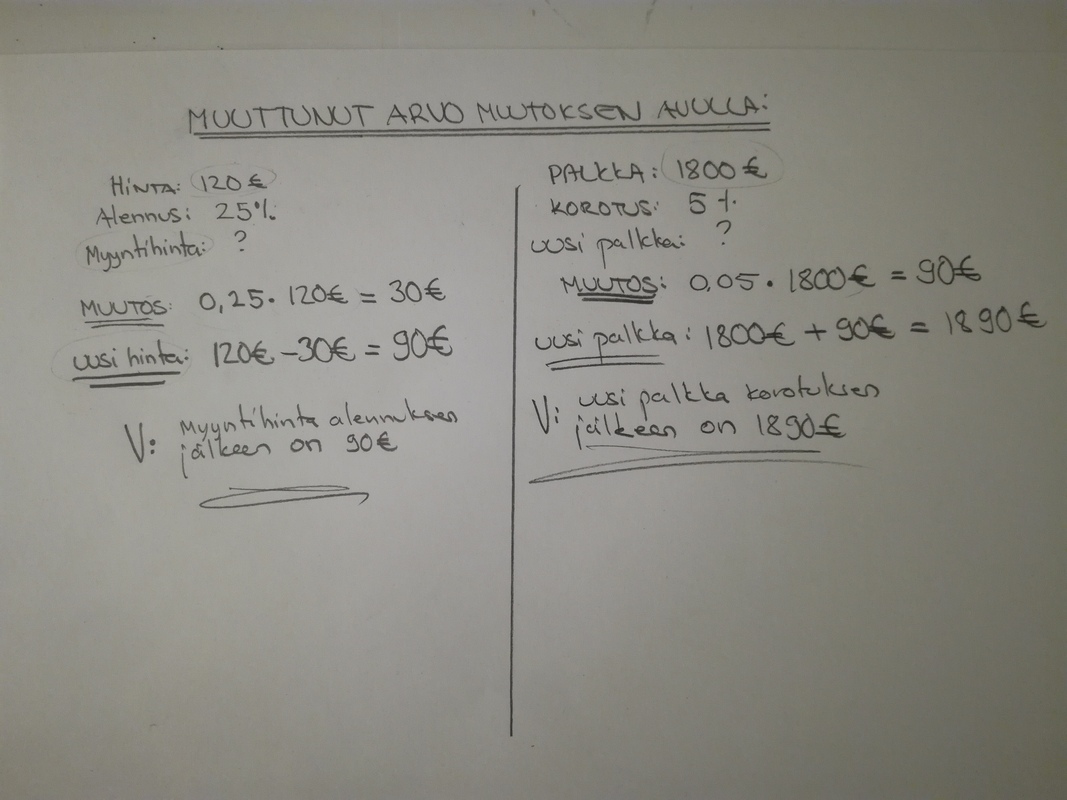 MUUTTUNUT ARVO MUUTOKSEN AVULLA:
HINTA: 120 €
Alennus: 25%
Myyntihinta: ?
MUUTOS: 0,25 · 120€ = 30€
uusi hinta: 120€ - 30€ = 90€
V: Myyntihinta alennuksen
jälkeen on 90€
PALKKA: 1800 €
KOROTUS: 5 %
uusi palkka: ?
MUUTOS: 0,05 · 1800€ = 90€
uusi palkka: 1800€ + 90€ = 1890€
V: uusi palkka korotuksen
jälkeen on 1890€